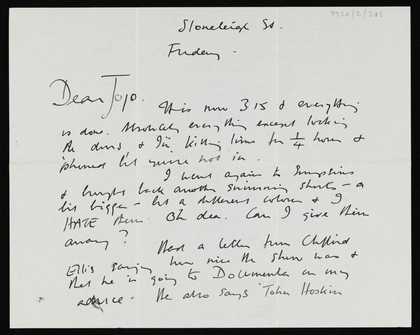 Stoneleigh St.
Friday.
Dear Jojo.
It is now 3 15 & everything
is done. Absolutely everything except locking
the doors, & I'm killing time for 1/4 hour &
phoned but you're not in.
I went again to Simpsons
& brought back another swimming shorts - a
bit bigger - but a different colour & I
HATE them. Oh dea. Can I give them
away?
Had a letter from Clifford
Ellis saying how nice the show was &
that he is going to Documenta on my
advice. He also says 'John Hoskin